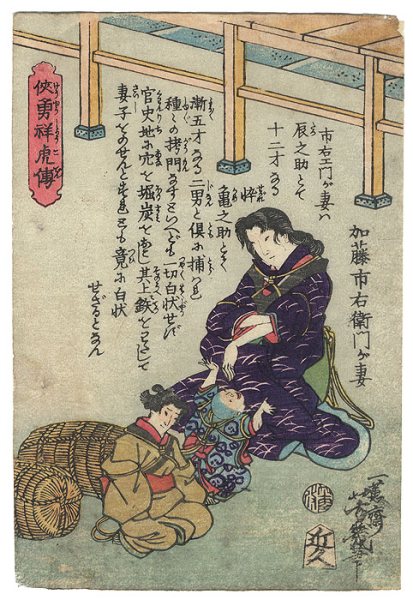 侠勇祥虎傳
加藤市右衛門が妻
市右エ門が妻ハ
辰之助とて
十二才なる
悴
亀之助とて
漸五才なる二男と倶に捕られ
種々の拷問なすといへども一切白状せず
官史地に穴を掘炭をおこし其上鉄をわたして
妻子をのせんとすれども竟に白状
せざるとなん
一蕙齋
芳幾筆